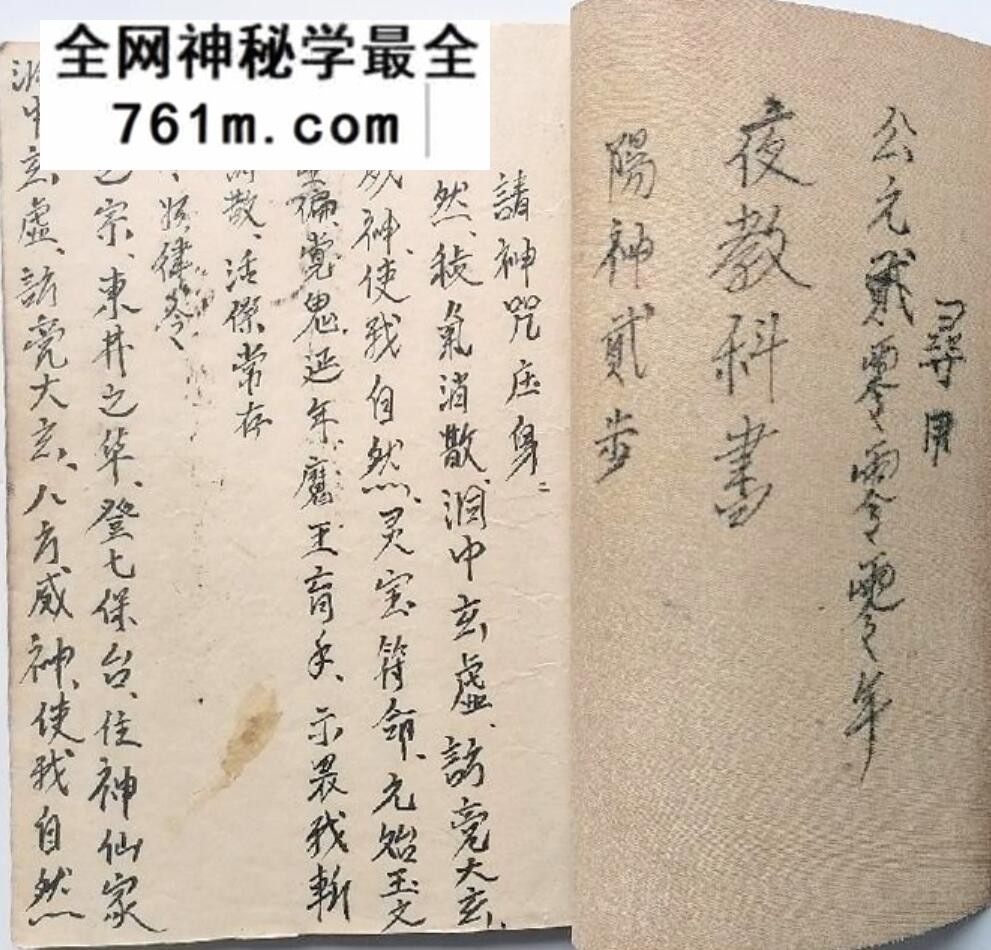 全网神秘学最全
761m.com
尋用
公元貳零零零年
夜教科書
陽神貳步
請神咒庄身
然、秽氣消散、洞中玄虛、訪亮大玄、
威神、使我自然、灵宝符命、元始玉文
遍、党鬼延年、魔王育手、示畏我斬
散、活保常存
律令
宗、東井之华、登七保台、住神仙家
中玄虛、訪亮大玄、八方威神、使我自然